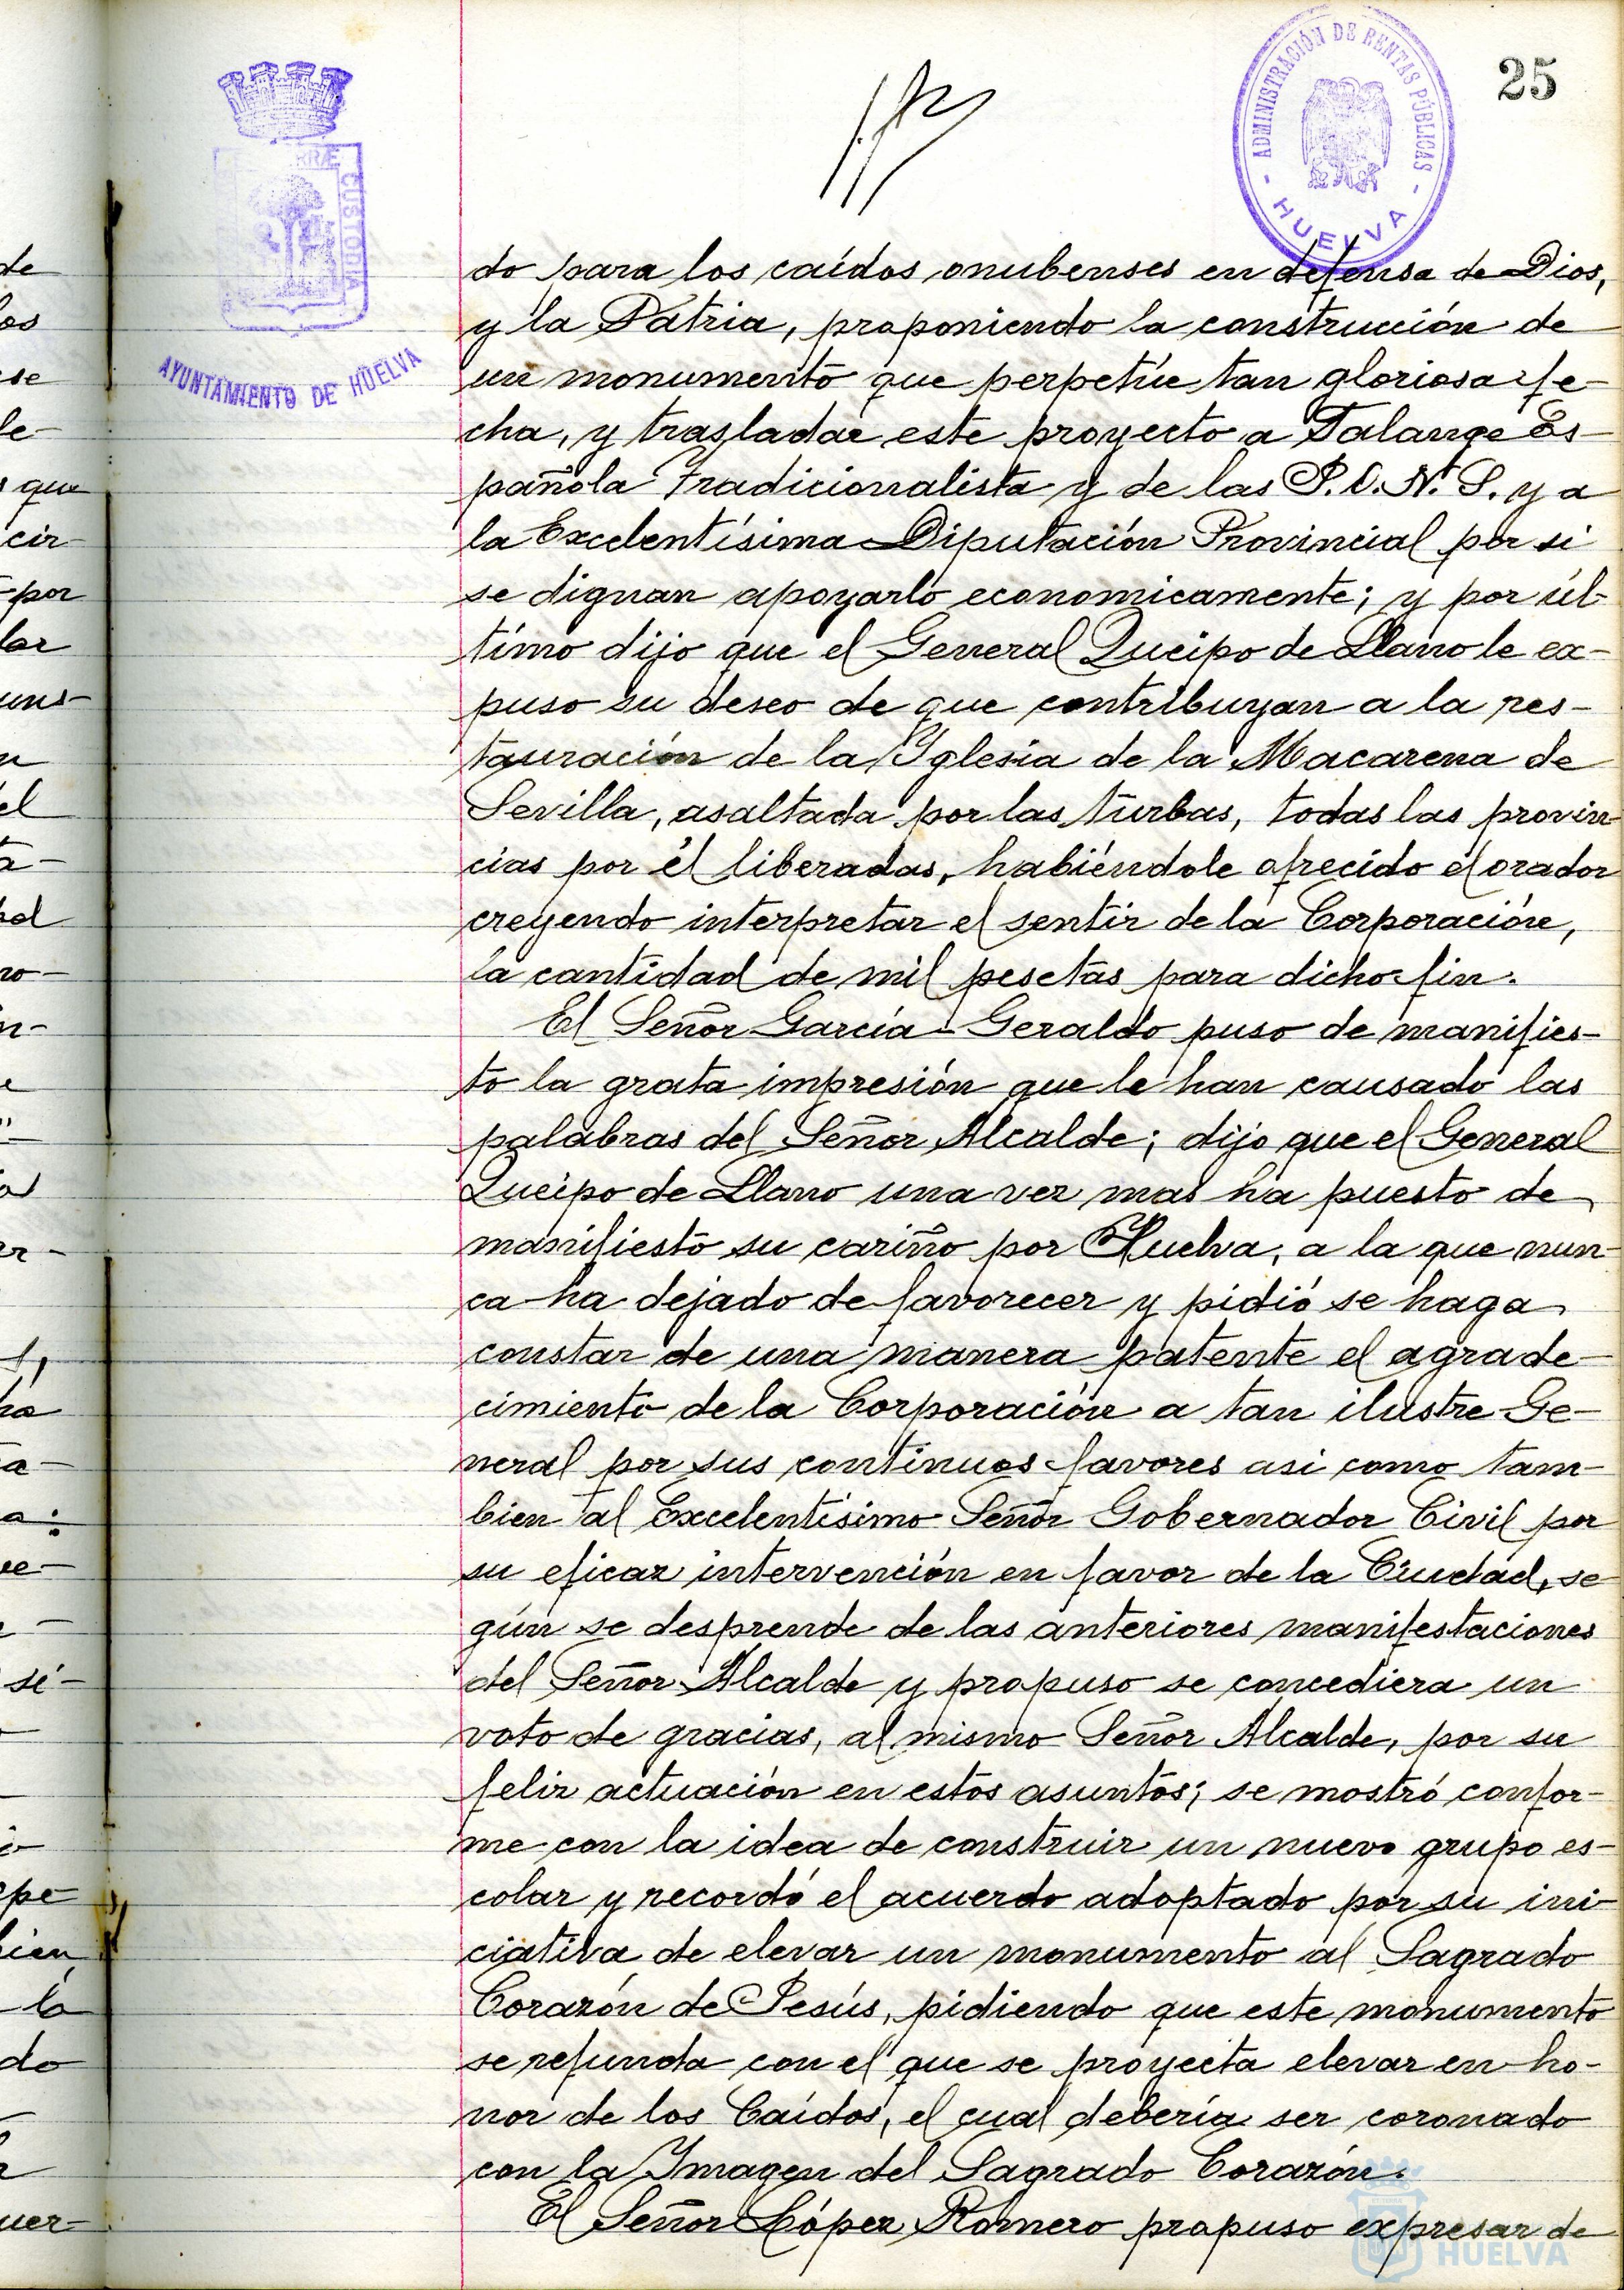 25
ADMINISTRACIÓN DE RENTAS PÚBLICAS
- HUELVA -
CUSTODIA
AYUNTAMIENTO DE HUELVA
do para los caídos onubenses en defensa de Dios,
y la Patria, proponiendo la construcción de
un monumento que perpetúe tan gloriosa fe-
cha, y trasladar este proyecto a Falange Es-
pañola Tradicionalista y de las J.O.N.S. y a
la Excelentísima Diputación Provincial por si
se dignan apoyarlo economicamente; y por úl-
timo dijo que el General Queipo de Llano le ex-
puso su deseo de que contribuyan a la res-
tauración de la Iglesia de la Macarena de
Sevilla, asaltada por las turbas, todas las provin-
cias por él liberadas, habiéndole ofrecido el orador
creyendo interpretar el sentir de la Corporación,
la cantidad de mil pesetas para dicho fin.
El Señor García-Geraldo puso de manifies-
to la grata impresión que le han causado las
palabras del Señor Alcalde; dijo que el General
Queipo de Llano una vez mas ha puesto de
manifiesto su cariño por Huelva, a la que nun-
ca ha dejado de favorecer y pidió se haga
constar de una manera patente el agrade-
cimiento de la Corporación a tan ilustre Ge-
neral por sus continuos favores asi como tam-
bien al Excelentísimo Señor Gobernador Civil por
su eficaz intervención en favor de la Ciudad, se-
gún se desprende de las anteriores manifestaciones
del Señor Alcalde y propuso se concediera un
voto de gracias, al mismo Señor Alcalde, por su
feliz actuación en estos asuntos; se mostró confor-
me con la idea de construir un nuevo grupo es-
colar y recordó el acuerdo adoptado por su ini-
ciativa de elevar un monumento al Sagrado
Corazón de Jesús, pidiendo que este monumento
se refunda con el que se proyecta elevar en ho-
nor de los Caídos, el cual debería ser coronado
con la Imagen del Sagrado Corazón.
El Señor López Romero propuso expresar de
HUELVA